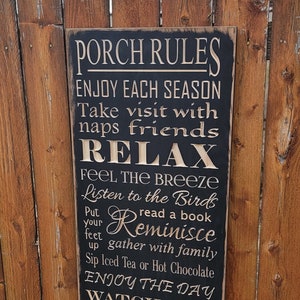 PORCH RULES
ENJOY EACH SEASON
Take naps visit with friends
RELAX
FEEL THE BREEZE
Listen to the Birds
Put your feet up
read a book
Reminisce
gather with family
Sip Iced Tea or Hot Chocolate
ENJOY THE DAY